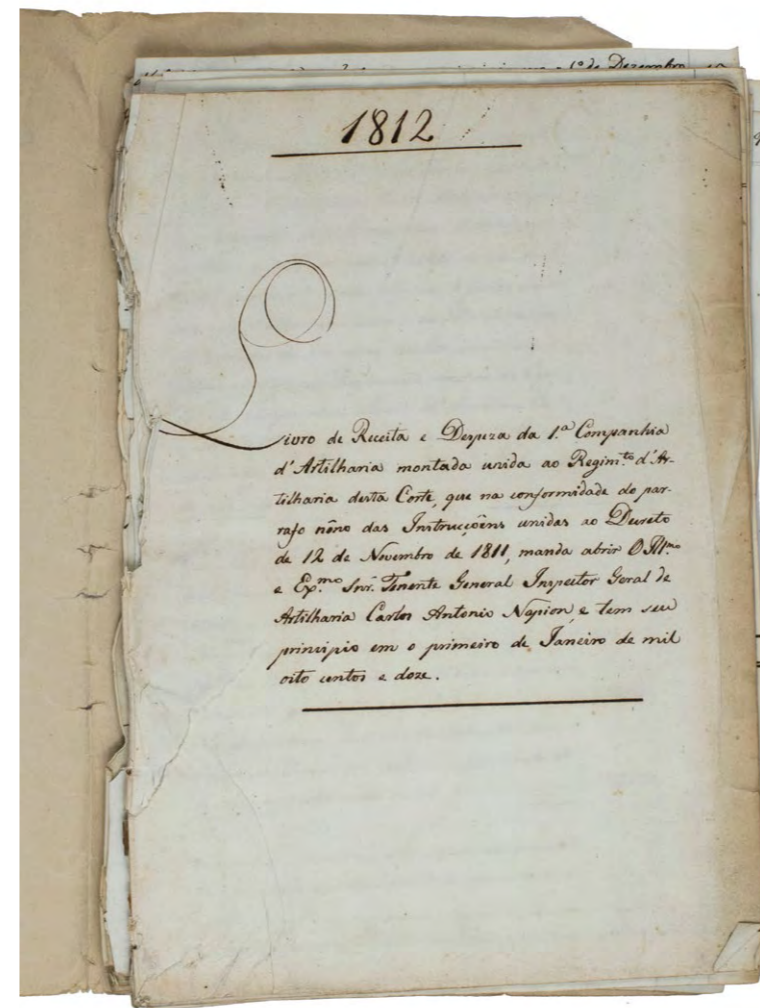 1º de Dezembro
1812
Livro de Receita e Despeza da 1.ª Companhia
d'Artilharia montada unida ao Regim.to d'Ar-
tilharia desta Corte, que na conformidade do par-
rafo nôno das Instrucçoêns unidas ao Decreto
de 12 de Novembro de 1811, manda abrir O Ill.mo
e Ex.mo Snr. Tenente General Inspector Geral de
Artilharia Carlos Antonio Napion, e tem seu
principio em o primeiro de Janeiro de mil
oito centos e doze.